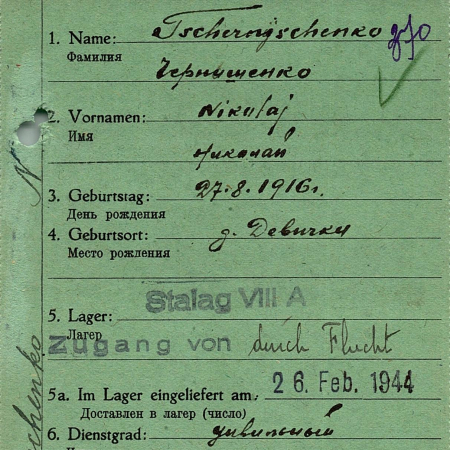 1. Name: Tschernyschenko
Фамилия
Чернишенко
2. Vornamen: Nikolaj
Имя
Николай
3. Geburtstag: 27.8.1916г.
День рождения
4. Geburtsort: д. Девички
Место рождения
Stalag VIII A
5. Lager:
Лагерь
Zugang von durch Flucht
26. Feb. 1944
5a. Im Lager eingeliefert am:
Доставлен в лагерь (число)
6. Dienstgrad: цивильный